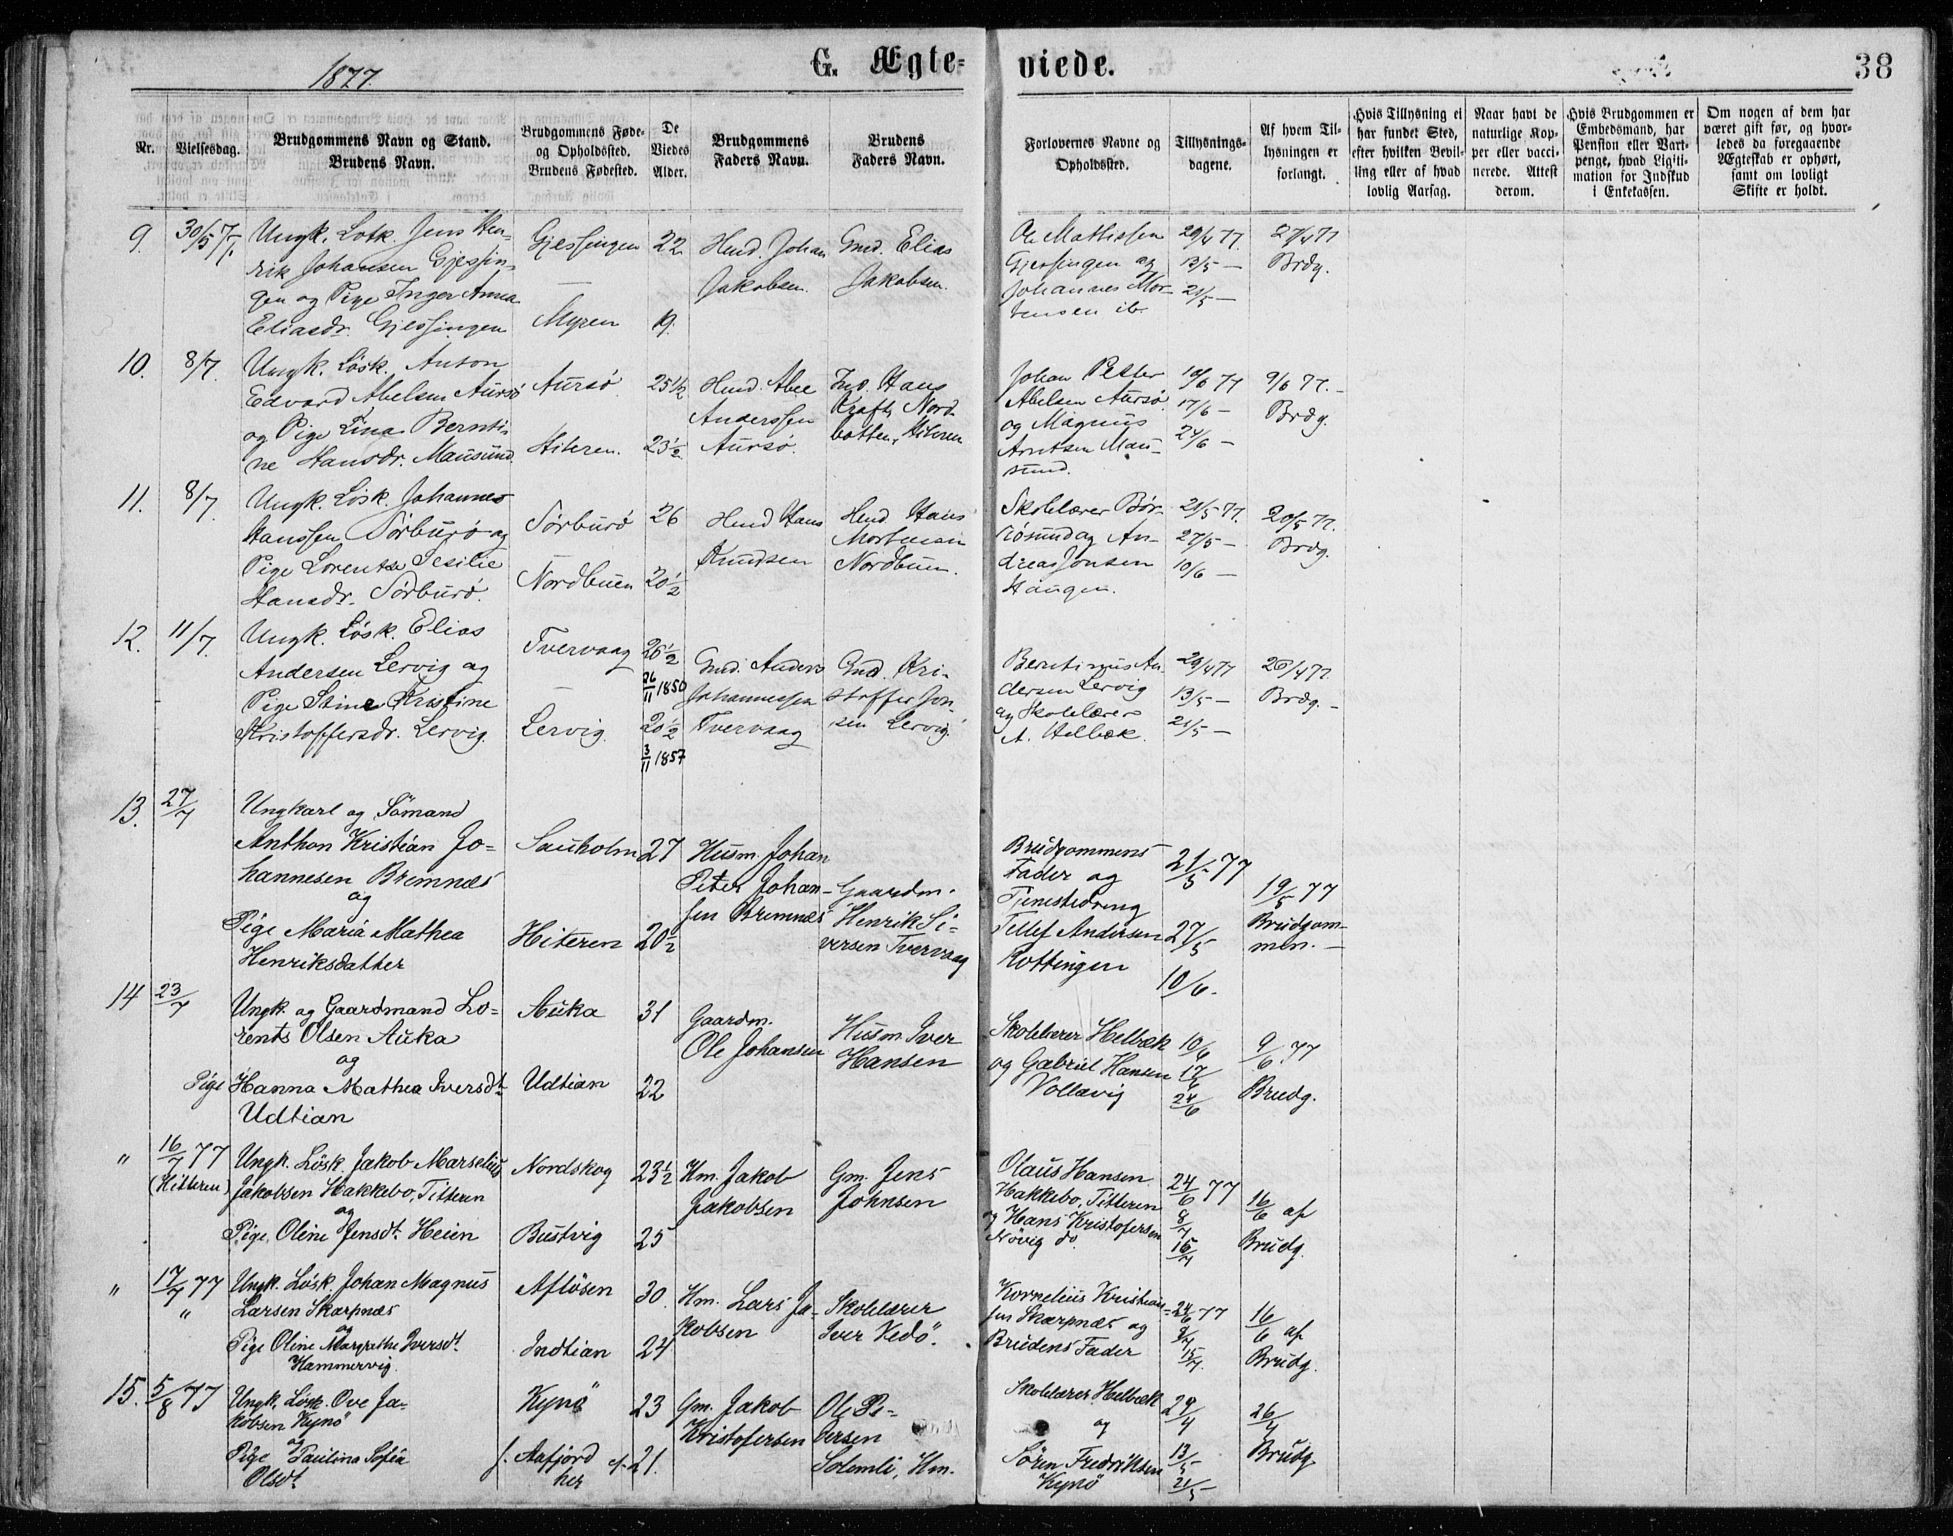 1877.
G. Ægte-
viede.
38
Nr.
Vielsesdag.
Brudgommens Navn og Stand.
Brudens Navn.
Brudgommens Føde-
og Opholdssted.
Brudens Fødested.
De
Viedes
Alder.
Brudgommens
Faders Navn.
Brudens
Faders Navn.
Forlovernes Navne og
Opholdssted.
Tillysnings-
dagene.
Af hvem Til-
lysningen er
forlangt.
Hvis Tillysning ei
har fundet Sted,
efter hvilken Bevil-
ling eller af hvad
lovlig Aarsag.
Naar havt de
naturlige Kop-
per eller vacci-
nerede. Attest
derom.
Hvis Brudgommen er
Embedsmand, har
Pension eller Vart-
penge, hvad Ligiti-
mation for Indskud
i Enkekassen.
Om nogen af dem har
været gift før, og hvor-
ledes da foregaaende
Ægteskab er ophørt,
samt om lovligt
Skifte er holdt.
9.
30/5 77.
Ungk. Losk. Jens Hen-
rik Johansen Gjessin-
gen og Pige Inger Anna
Eliasdr. Gjessingen
Gjessingen
—
Myren
22
19.
Hmd. Johan
Jakobsen.
Gmd. Elias
Jakobsen.
Ole Mathissen
Gjessingen og
Johannes Mor-
tensen ib.
29/4 77
13/5 —
21/5 —
27/4 77
Brdg.
10.
8/7.
Ungk. Løsk. Anton
Edvard Abelsen Aursø
og Pige Lina Bernti-
ne Hansdr. Mausund.
Aursø
Hiteren.
25 1/2
23 1/2
Hmd. Abel
Anderssen
Aursø.
Ind. Hans
Kraft, Nord-
botten, Hiteren
Johan Petter
Abelsen Aursø
og Magnus
Arntsen Mau-
sund.
10/6 77
17/6 —
24/6 —
9/6 77. -
Brdg.
11.
8/7.
Ungk. Løsk. Johannes
Hanssen Sørburø og
Pige Lorentse Sesilie
Hansdr. Sørburø.
Sørburø
Nordbuen
26
20 1/2
Hmd Hans
Knudsen
Hmd. Hans
Mortensen
Nordbuen.
Skolelærer Bør-
røsund og An-
dreas Jonsen
Haugen.
21/5 77.
27/5 —
10/6 —
20/5 77.
Brdg.
12.
11/7.
Ungk. Løsk. Elias
Andersen Lervig og
Pige Stine Kristine
Kristoffersdr. Lervig.
Tvervaag
—
Lervig
26 1/2
26/11 1850
20 1/2
3/11 1857
Gmd. Anders
Johannessen
Tvervaag
Gmd. Kri-
stoffer Jon-
sen Lervig.
Berntinus An-
dersen Lervig
og Skolelærer
A. Helbæk.
29/4 77
13/5 —
21/5 —
26/4 77.
Brdg. -
13.
27/7
Ungkarl og Sømand
Anthon Kristian Jo=
hannesen Bremnes
og
Pige Maria Mathea
Henriksdatter
Sauholm
Hiteren
27
20 1/2
Husm. Johan
Peter Johan-
sen Bremnes
Gaardm.
Henrik Si=
versen Tvervaag
Brudgommens
Fader og
Tjenestedreng
Tellef Andersen
Kottingen
21/5 77
27/5
10/6.
19/5 77
Brudgom-
men. —
14
23/7
Ungk. og Gaardmand Lo=
rents Olsen Auka
og
Pige Hanna Mathea Iversdt.
Udtian
Auka
Udtian
31
22
Gaardm.
Ole Johansen
Husm. Iver
Hansen
Skolelærer Helbæk
og Gabriel Hansen
Vollavig
10/6
17/6
24/6
9/6 77
Brudg.
"
16/7 77
(Hitteren)
Ungk. Løsk. Jakob Marselius
Jakobsen Hakkebo, Titteren
og
Pige Oline Jensdt. Heien
Nordskog
Bustvig
23 1/2
25
Hm. Jakob
Jakobsen
Gm. Jens
Johnsen
Olaus Hansen
Hakkebo, Titteren
og Hans Kristofersen
Nøvig do.
24/6 77
8/7
15/7
16/6 af
Brudg.
"
17/7 77
"
Ungk. Løsk. Johan Magnus
Larsen Skarpnes
og
Pige Oline Margrethe Iversdt.
Hammervig.
Afløsen
Indtian
30.
24
Hm. Lars Ja-
kobsen
Skolelærer
Iver Vedø.
Kornelius Kristian=
sen Skarpnes og
Brudens Fader
24/6 77
8/7
15/7.
16/6 af
Brudg.
15.
5/8 77
Ungk. Løsk. Ove Ja-
kobsen Kynø
og
Pige Paulina Sofia
Olsdt
Kynø
f. Aafjord
23
21.
Gm. Jakob
Kristofersen
Ole Pe-
dersen
Solemli, Hm.
Skolelærer Helbæk
og
Søren Fredriksen
Kynø
29/4
13/5
21/5
26/4
Brudg